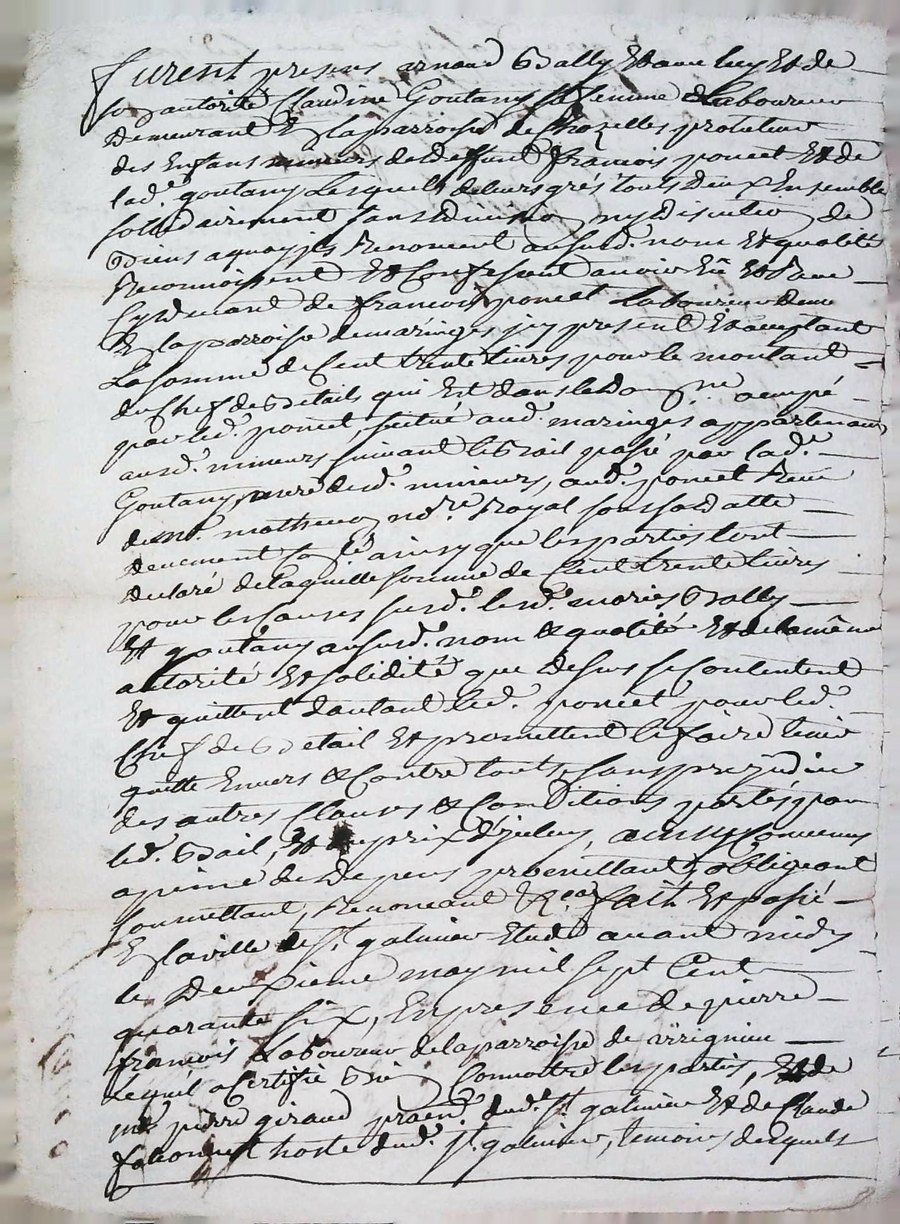 furent presens arnaud Bally Et avec luy Et de
son autorité Claudine Goutany sa femme Laboureur
demeurant En la parroisse de Chazelles protuteur
des Enfans mineurs de deffunt francois poncet Et de
lad.e goutany Lesquels de leurs grés touts deux Ensemble
sollidairement sans division ny discution de
Biens a quoy ils Renoncent au surd. nom Et qualité
Reconnoissent Et Confessent avoir Eû Et Receu
Cy devant de francois poncet Laboureur dem.
En la parroisse de maringes icy present Et acceptant
La somme de Cent trente Livres pour le montant
du Chef de Bétails qui Est dans le domaine occupé
par led. poncet, scitué aud. maringes appartenant
ausd. mineurs suivant le Bail passé par lad.e
Goutany mere desd. mineurs, aud. poncet Receu
de m.e mathevon no.re Royal sous sa datte
deuement Con.lé ainsy que les parties l'ont
declaré de laquelle somme de Cent trente Livres
pour les Causes surd. lesd. mariés Bally
Et goutany au surd. nom & qualité Et de la même
autorité Et solidité que dessus se Contentent
Et quittent d'autant led. poncet pour led.
Chef de Bétail Et promettent le faire tenir
quitte Envers & Contre touts, sans prejudice
des autres Clauses & Conditions portés par
led. Bail, Et au prix d'jceluy, ainsy Convenus
a peine de depens promettant, obligeant
soumettant, Renonceant &.ca fait Et passé
En la ville de S.t galmier Etude avant midy
le deuxieme may mil sept Cent
quarante six, En presence de pierre
francois Laboureur de la parroisse de virignieu
Lequel a Certifié Bien Connoitre les parties, Et de
m.e pierre giraud praen. dud. S.t galmier Et de Claude
hoste dud. S.t galmier, temoins desquels